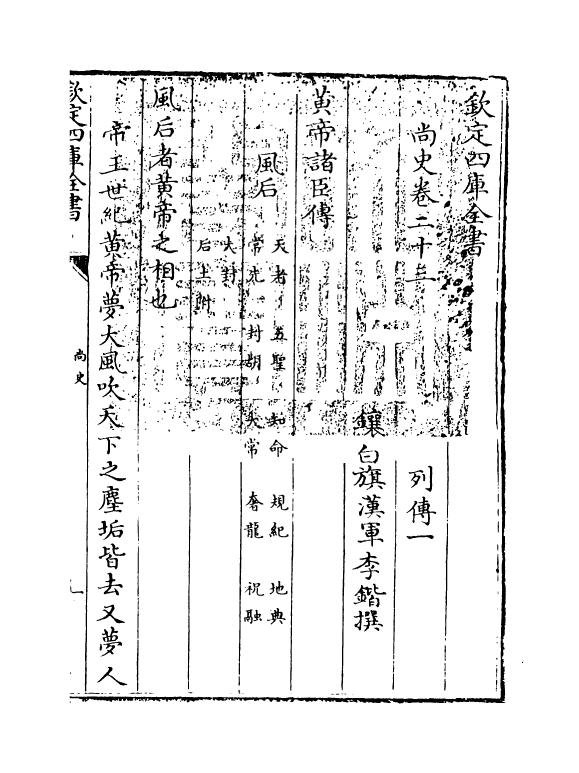 欽定四庫全書
尚史卷二十三
列傳一
鑲白旗漢軍李鍇撰
黄帝諸臣傳
風后
天老 五聖 知命 規紀 地典
常先 封胡 大常 奢龍 祝融
大封
后土附
風后者黄帝之相也
帝王世紀黄帝夢大風吹天下之塵垢皆去又夢人
欽定四庫全書
尚史